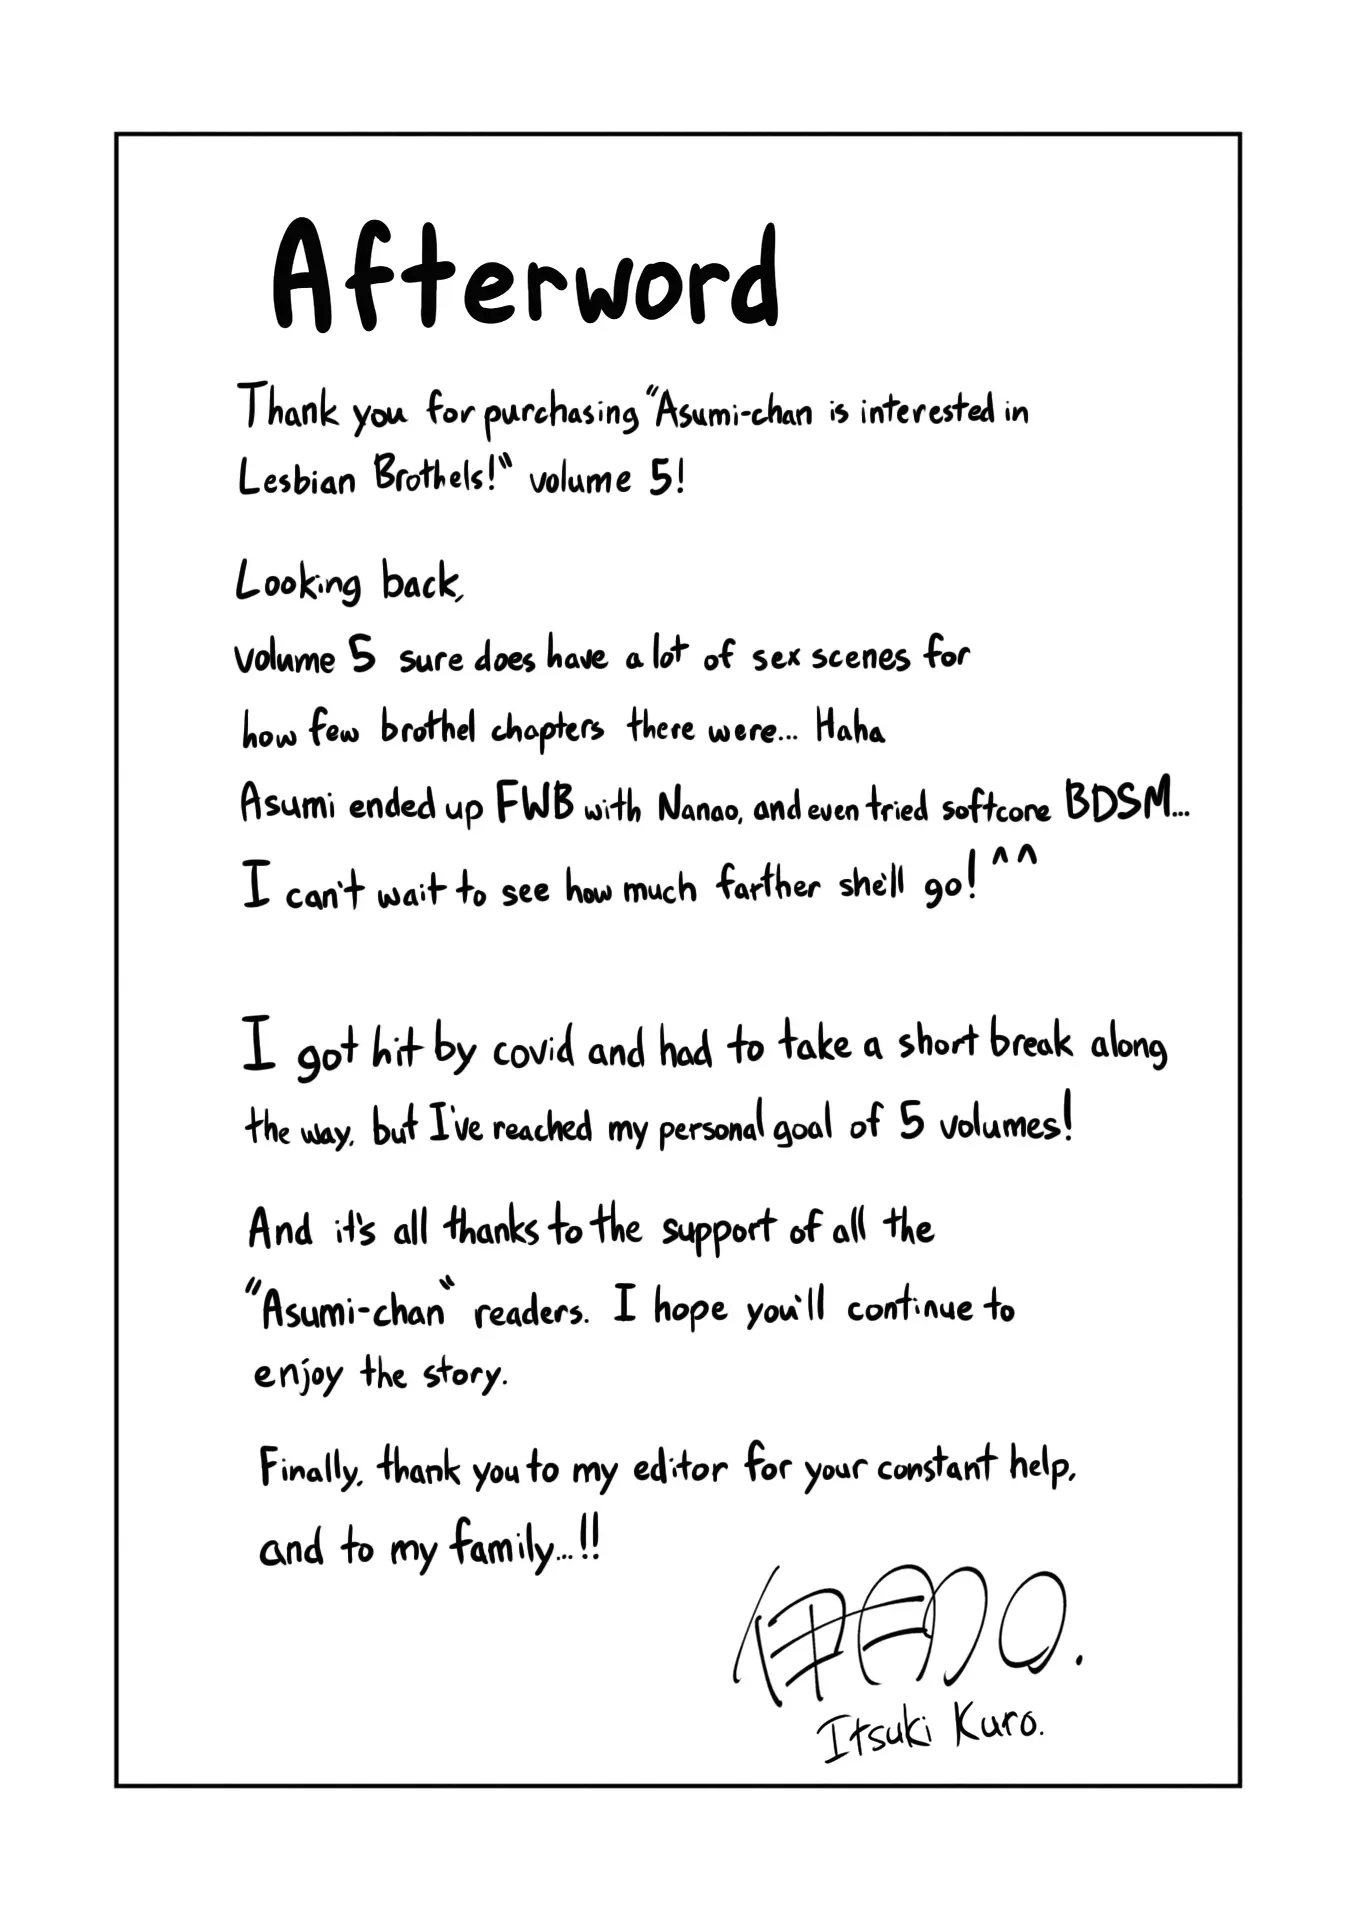 Afterword
Thank you for purchasing "Asumi-chan is interested in
Lesbian Brothels!" volume 5!
Looking back,
volume 5 sure does have a lot of sex scenes for
how few brothel chapters there were... Haha
Asumi ended up FWB with Nanao, and even tried softcore BDSM...
I can't wait to see how much farther she'll go! ^^
I got hit by covid and had to take a short break along
the way, but I've reached my personal goal of 5 volumes!
And it's all thanks to the support of all the
"Asumi-chan" readers. I hope you'll continue to
enjoy the story.
Finally, thank you to my editor for your constant help,
and to my family...!!
Itsuki Kuro.